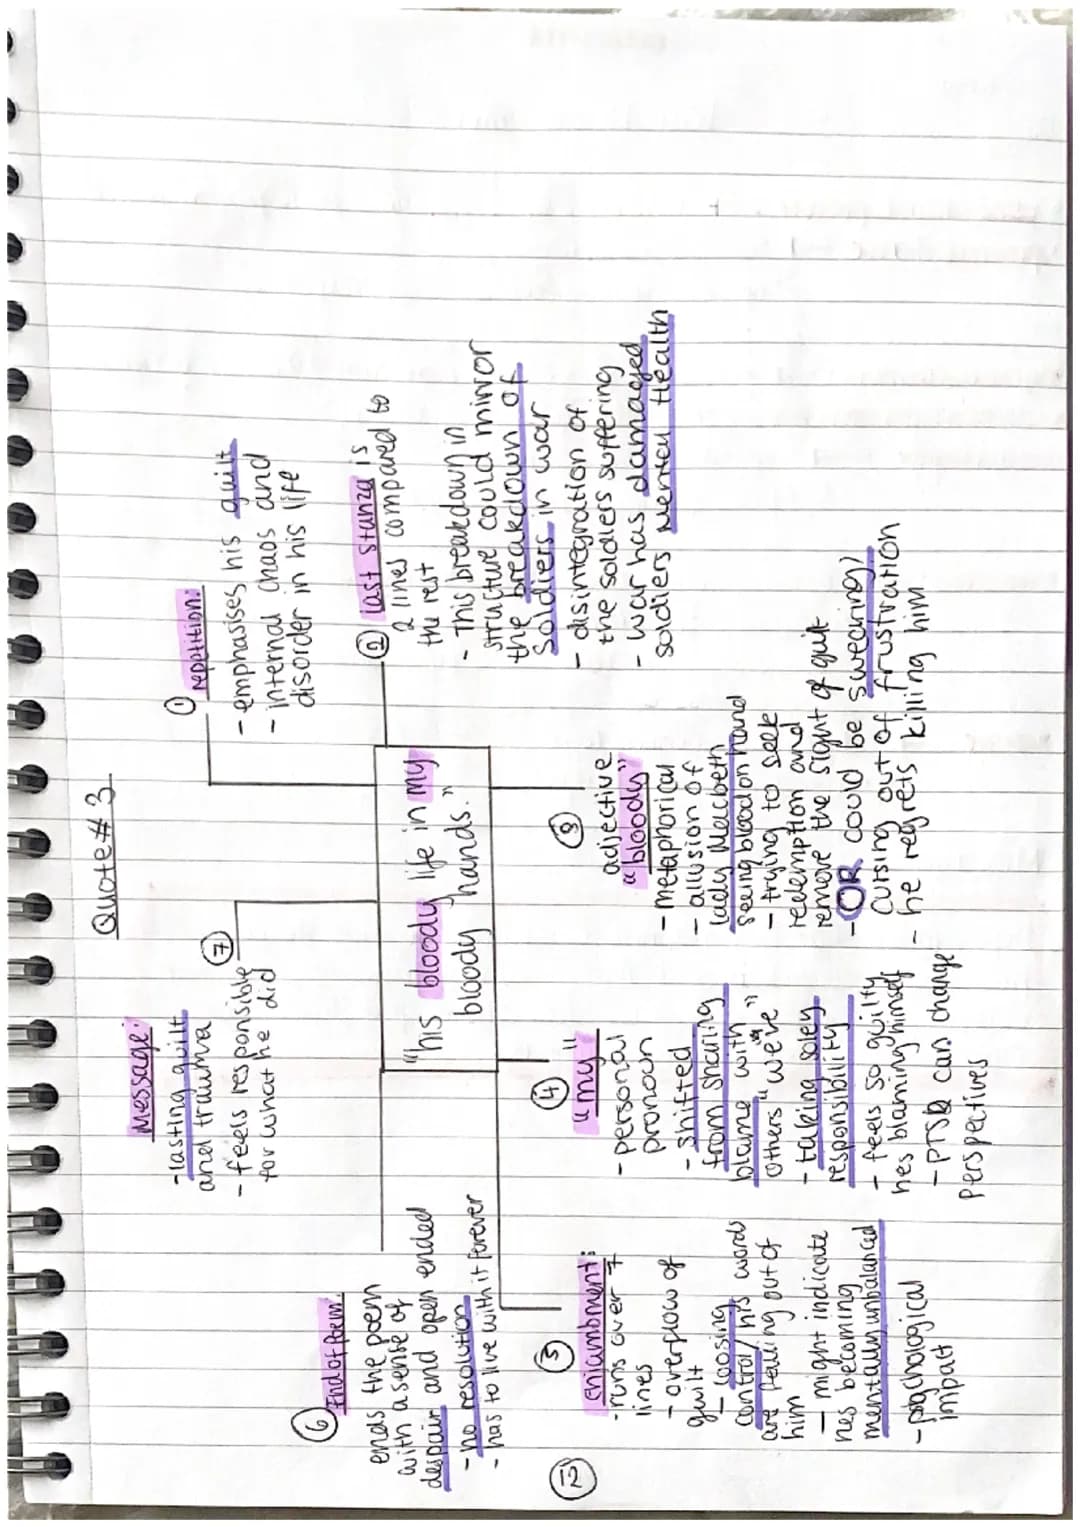 Quote #3
"his bloody life in my
bloody hands."
① repetition:
- emphasises his guilt
- internal chaos and
disorder in his life
② last stanza is
2 lines compared to
the rest
- This breakdown in
structure could mirror
the breakdown of
soldiers in war
- disintegration of
the soldiers suffering
- war has damaged
soldiers mental health
③
adjective
"bloody"
- metaphorical
- allusion of
lady Macbeth
seeing blood on hand
- trying to seek
redemption and
remove the sight of guilt
- OR could be swearing/
cursing out of frustration
- he regrets killing him
④
"my"
- personal
pronoun
- shifted
from sharing
blame with
others "we've"
- taking soley
responsibility
- feels so guilty
hes blaming himself
- PTSD can change
perspectives
⑤
enjambment:
- runs over 7
lines
- overflow of
guilt
- loosing
control/his words
are falling out of
him
- might indicate
hes becoming
mentally unbalanced
- psychological
impatt
⑥ End of poem:
ends the poem
with a sense of
despair and open ended
- no resolution
- has to live with it forever
⑦
Message:
- lasting guilt
and trauma
- feels responsible
for what he did
⑫